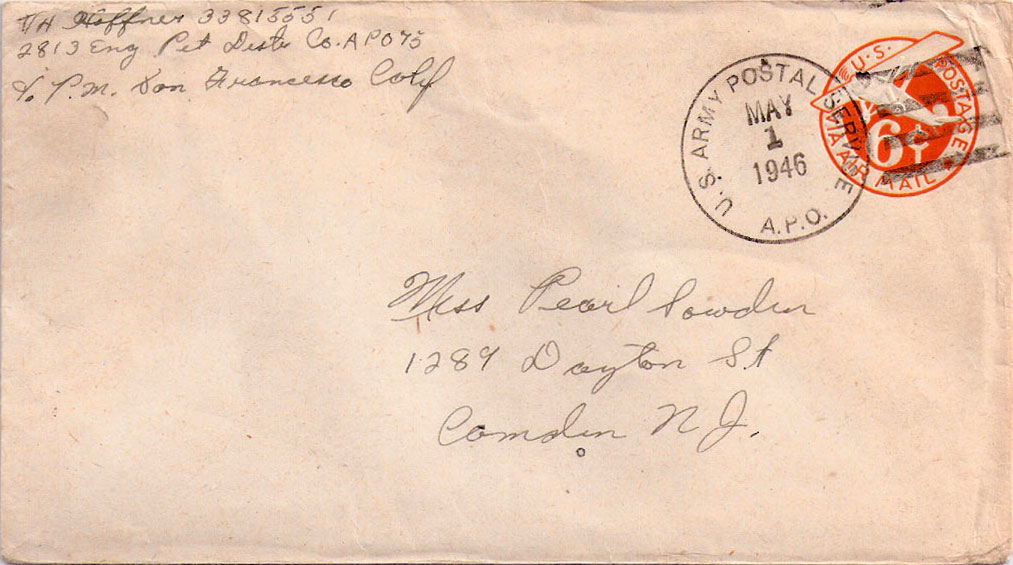 T/4 Hoffner 33815551
2813 Eng Pet Distr Co. APO 75
% P.M. San Francesco Calif
U.S. ARMY POSTAL SERVICE
MAY
1
1946
A.P.O.
U.S. POSTAGE
6¢
VIA AIR MAIL
Miss Pearl Sowden
1289 Dayton St
Camden N J.